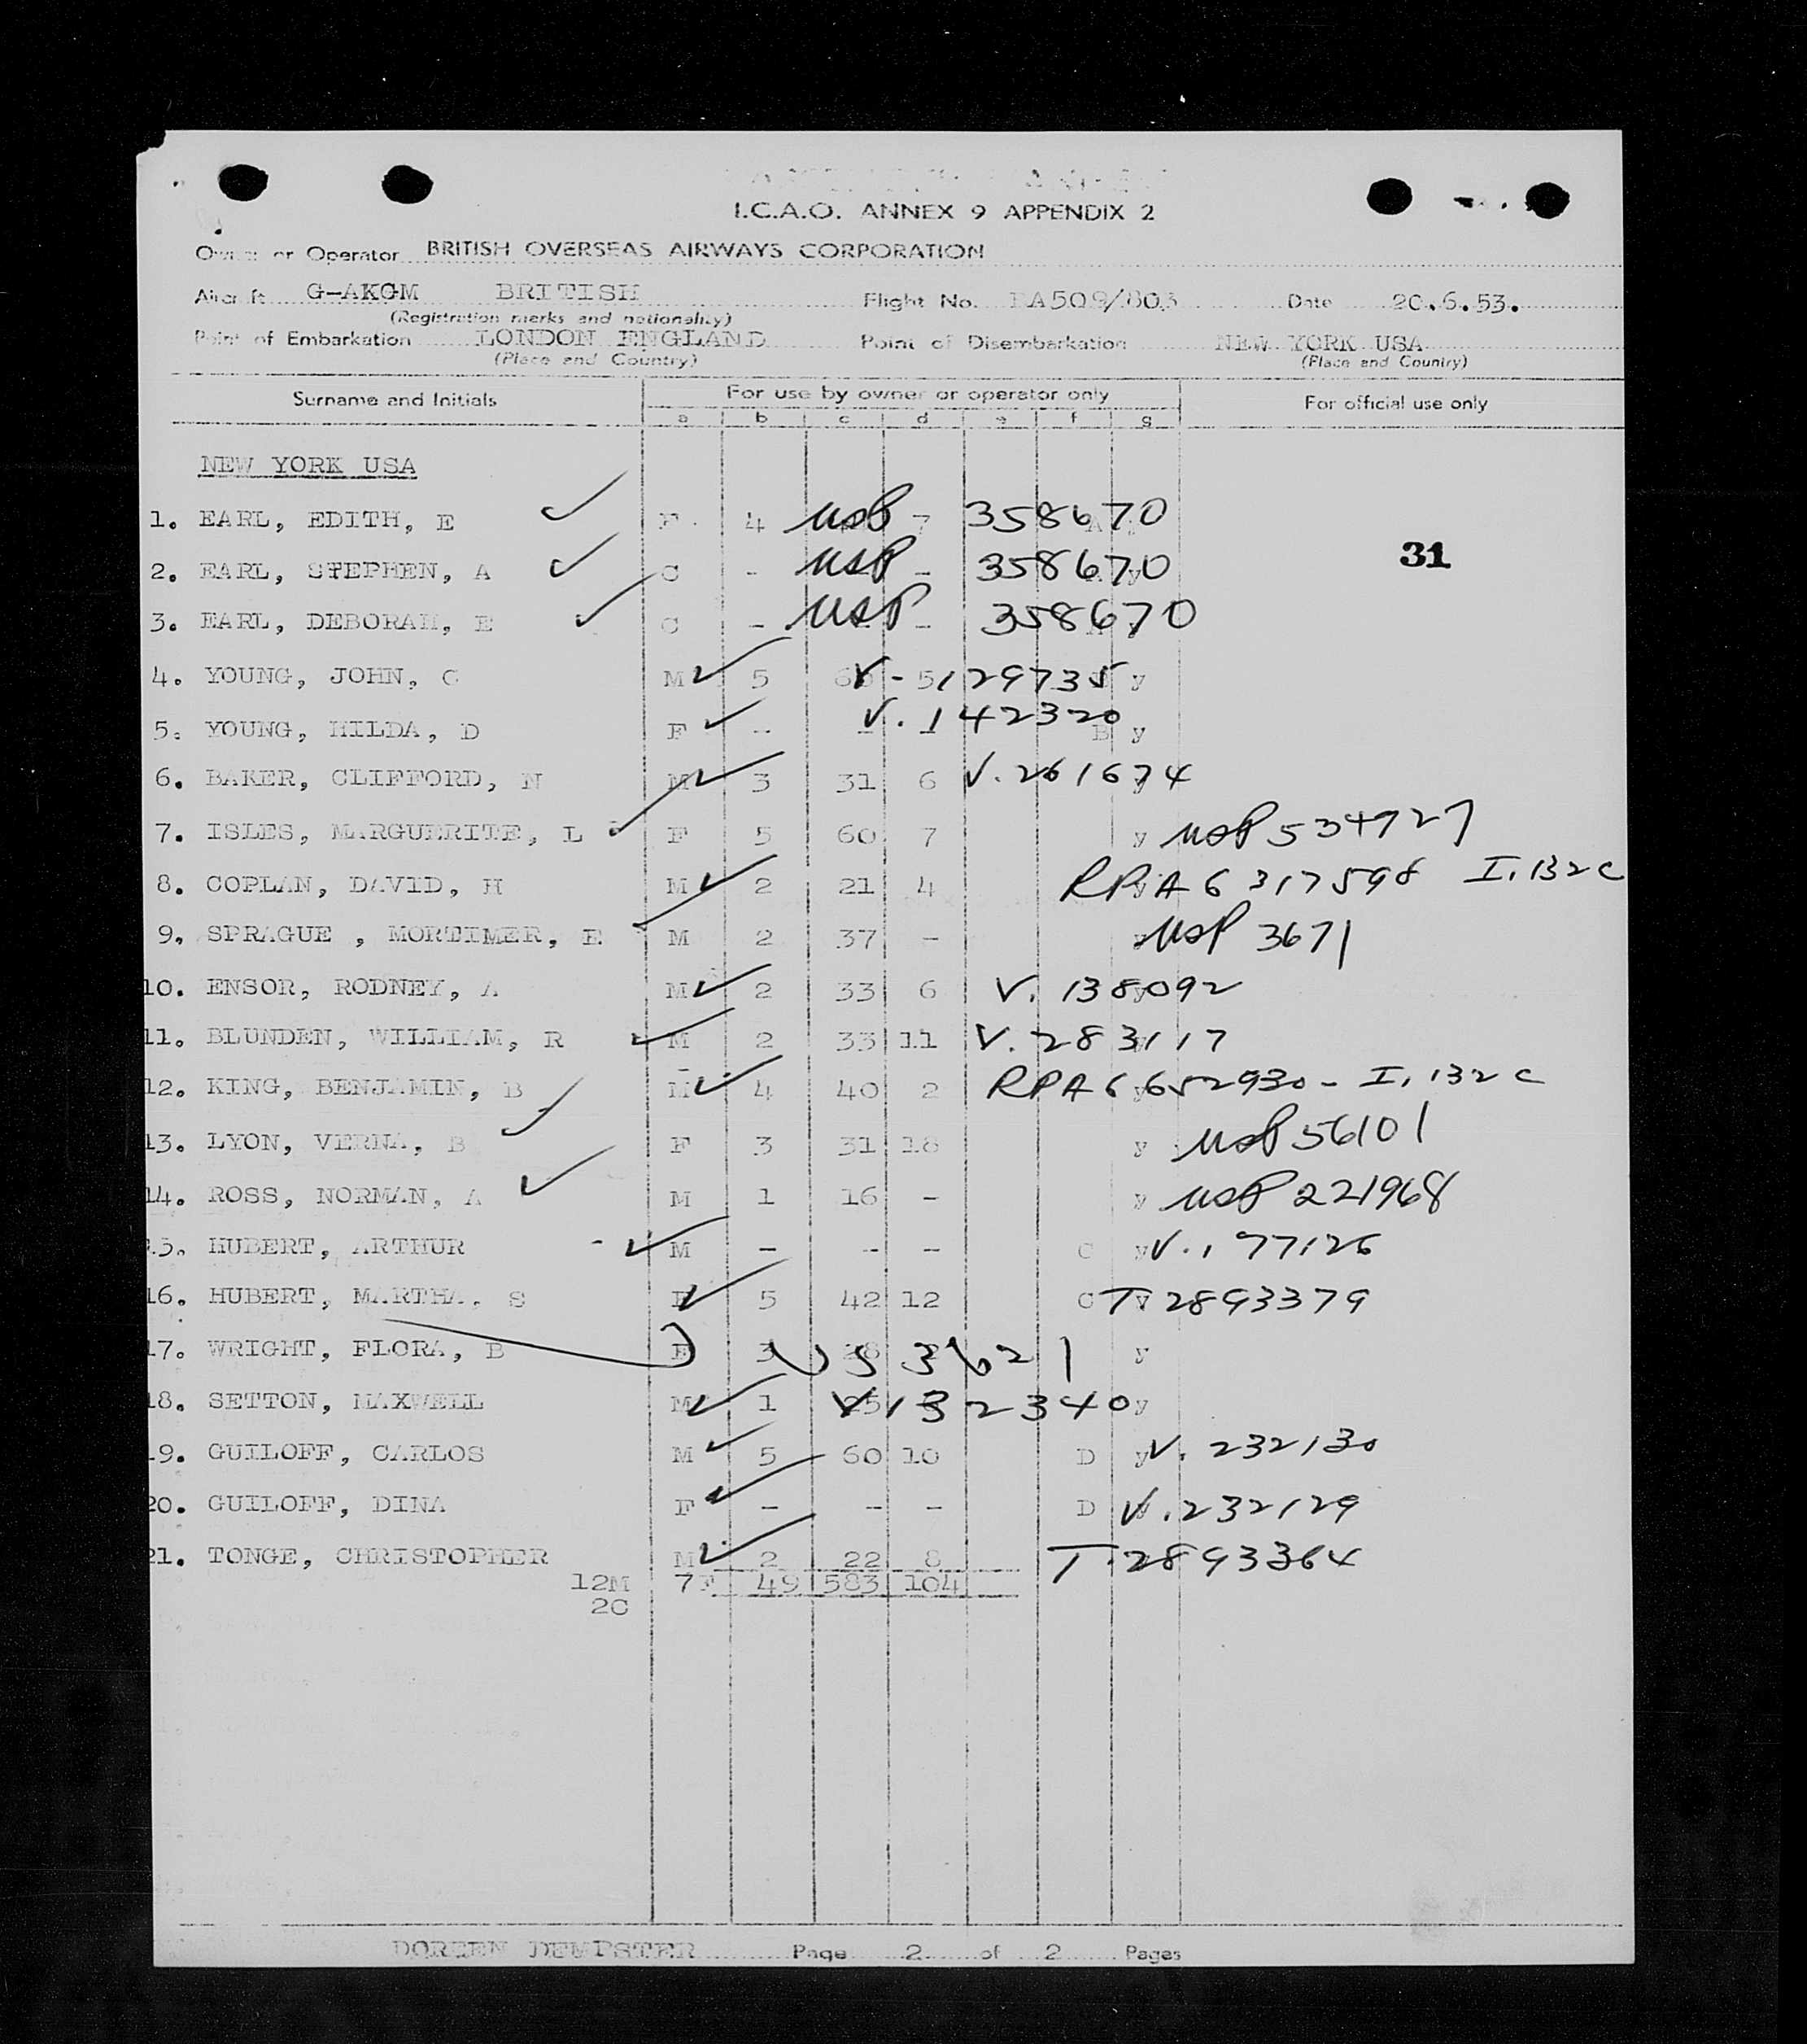 I.C.A.O. ANNEX 9 APPENDIX 2
Owner or Operator BRITISH OVERSEAS AIRWAYS CORPORATION
Aircraft G-AKGM BRITISH Flight No. BA509/803 Date 20.6.53.
(Registration marks and nationality)
Point of Embarkation LONDON ENGLAND Point of Disembarkation NEW YORK USA
(Place and Country) (Place and Country)
Surname and Initials For use by owner or operator only For official use only
a b c d e f g
NEW YORK USA
1. EARL, EDITH, E F 4 USP 7 358670
31
2. EARL, STEPHEN, A C - USP - 358670 y
3. EARL, DEBORAH, E C - USP - 358670
4. YOUNG, JOHN, G M 5 V-129735 y
5. YOUNG, HILDA, D F - - - V.142320 B y
6. BAKER, CLIFFORD, N M 3 31 6 V.261674 y
7. ISLES, MARGUERITE, L F 5 60 7 y USP 534727
8. COPLAN, DAVID, H M 2 21 4 y RPA 6317598 I.132c
9. SPRAGUE , MORTIMER, E M 2 37 - y USP 3671
10. ENSOR, RODNEY, A M 2 33 6 V. 138092 y
11. BLUNDEN, WILLIAM, R M 2 33 11 V.283117
12. KING, BENJAMIN, B M 4 40 2 RPA 6652930 - I.132c y
13. LYON, VERNA, B F 3 31 18 y USP 56101
14. ROSS, NORMAN, A M 1 16 - y USP 221968
15. HUBERT, ARTHUR M - -- - C y V.177126
16. HUBERT, MARTHA, S F 5 42 12 C y T.2893379
17. WRIGHT, FLORA, B F 3 28 y
18. SETTON, MAXWELL M 1 V132340 y
19. GUILOFF, CARLOS M 5 60 10 D y V. 232130
20. GUILOFF, DINA F - -- - D V.232129
21. TONGE, CHRISTOPHER M 2 22 8 T.2893364
12M 7F 49 583 104
2C
DOREEN DEMPSTER Page 2 of 2 Pages